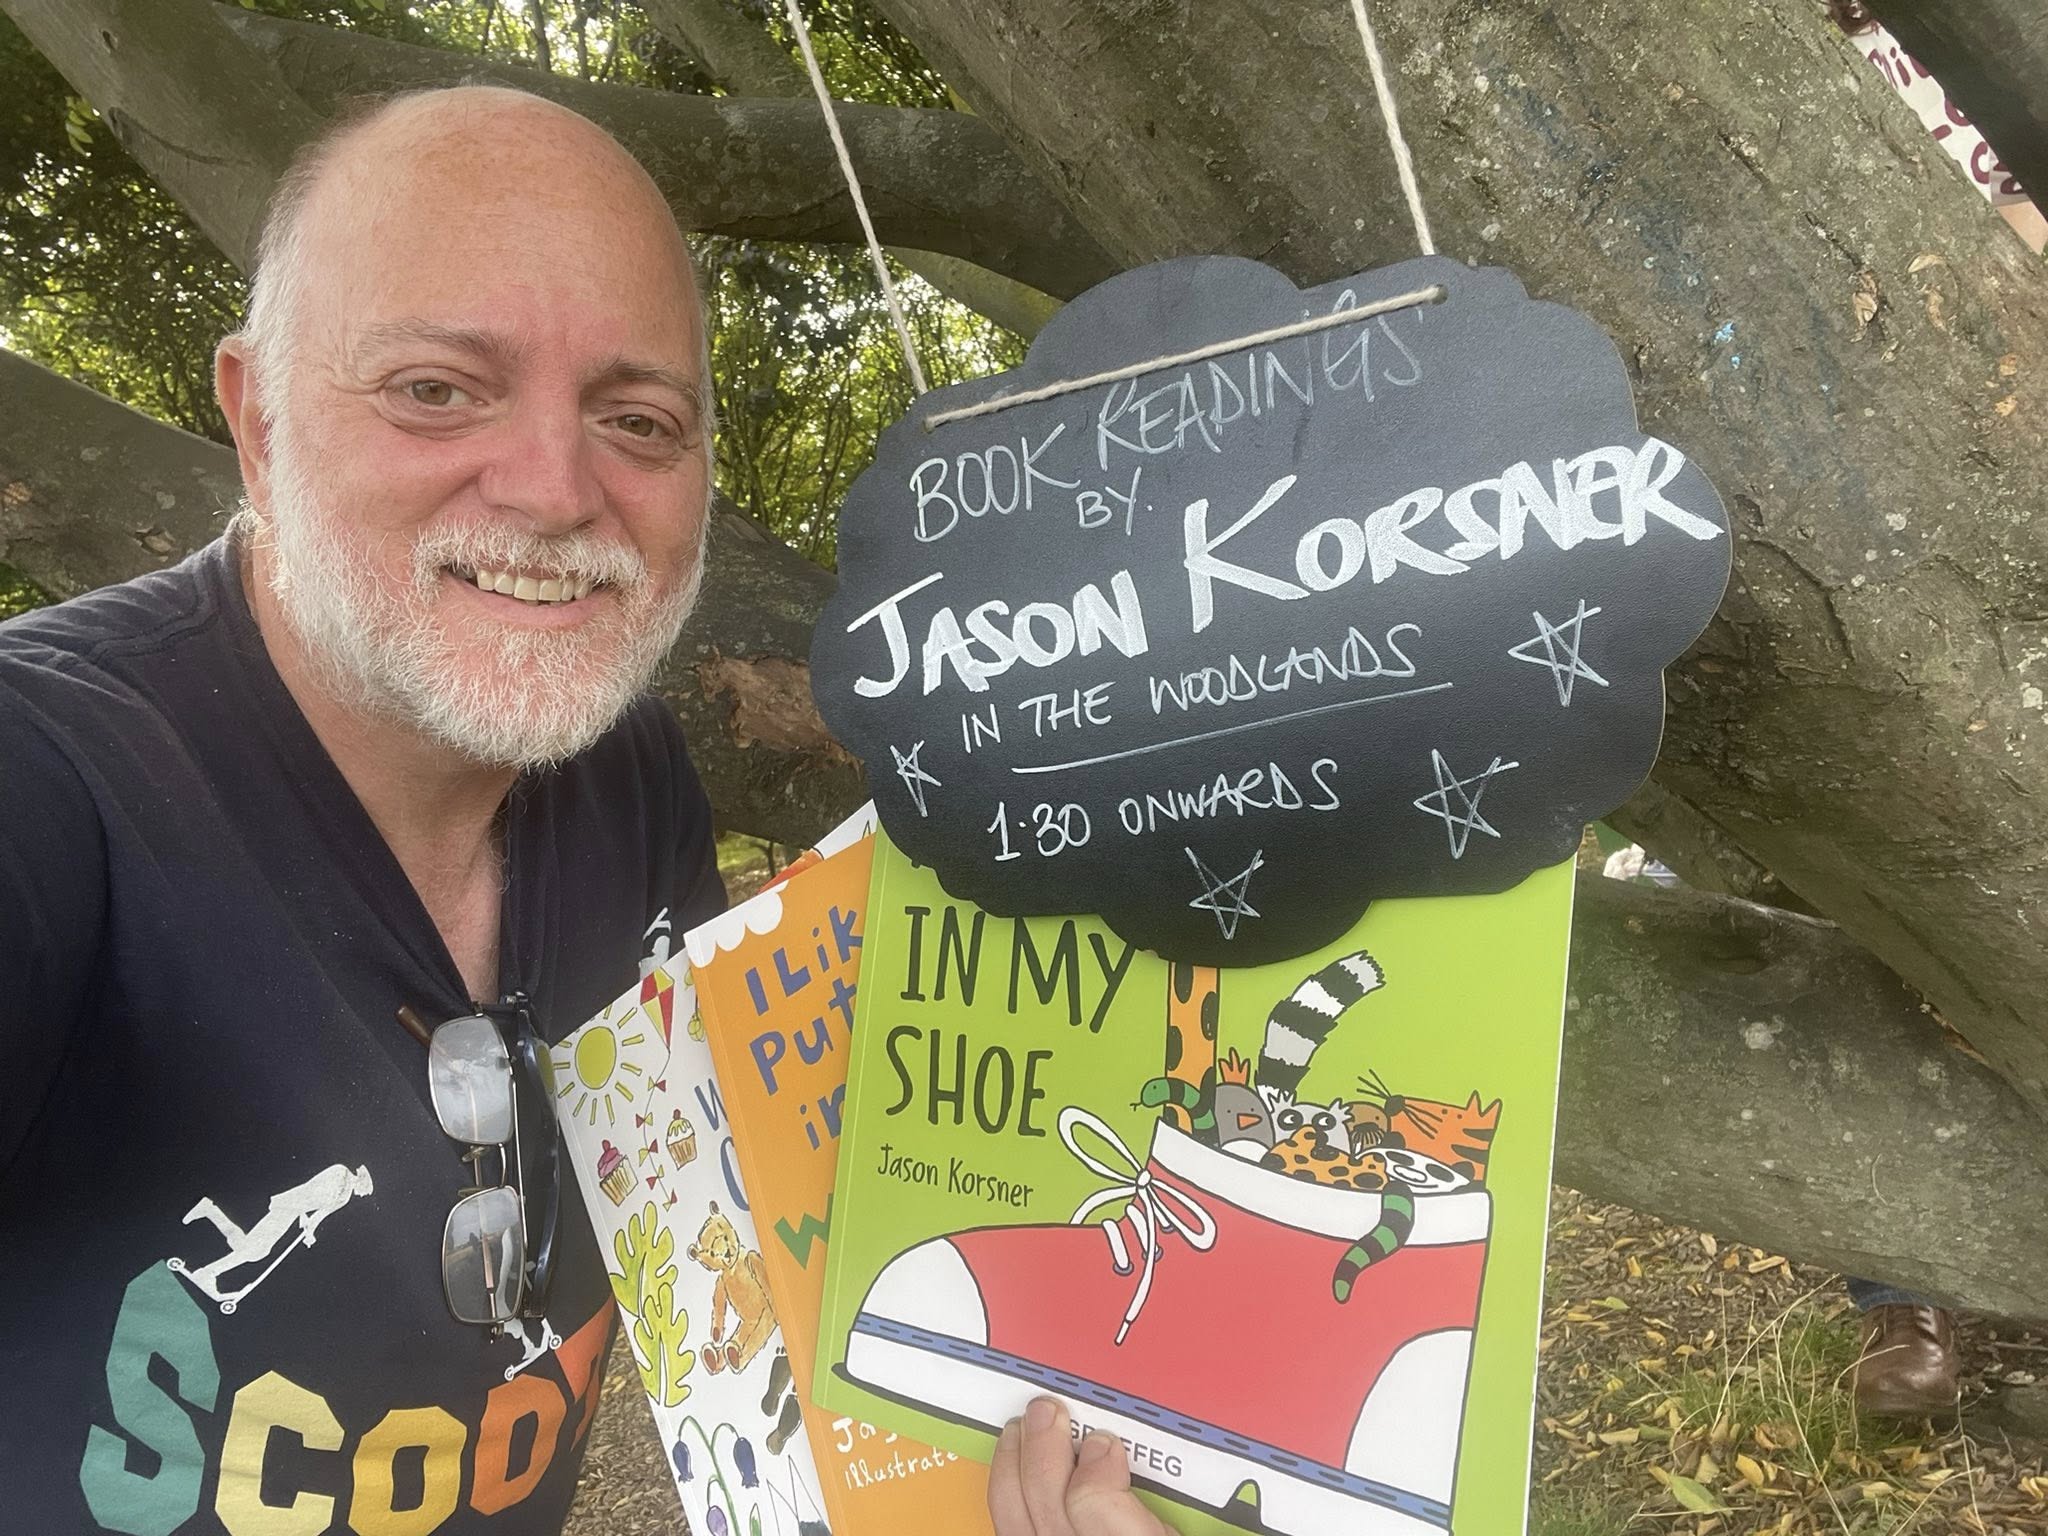 BOOK READINGS
BY.
JASON KORSNER
IN THE WOODLANDS
1:30 ONWARDS
IN MY
SHOE
Jason Korsner
I Lik
Put
in
Illustrate
SCOOT